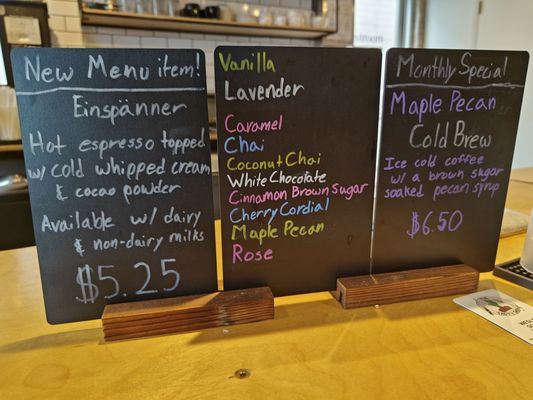 New Menu item!
Einspänner
Hot espresso topped
w/ cold whipped cream
& cocoa powder
Available w/ dairy
& non-dairy milks
$5.25
Vanilla
Lavender
Caramel
Chai
Coconut Chai
White Chocolate
Cinnamon Brown Sugar
Cherry Cordial
Maple Pecan
Rose
Monthly Special
Maple Pecan
Cold Brew
Ice cold coffee
w/ a brown sugar
soaked pecan syrup
$6.50